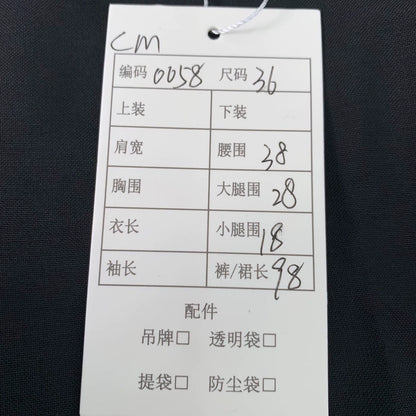 CM
编码 0058 尺码 36
上装 下装
肩宽 腰围 38
胸围 大腿围 28
衣长 小腿围 18
袖长 裤/裙长 98
配件
吊牌□ 透明袋□
提袋□ 防尘袋□